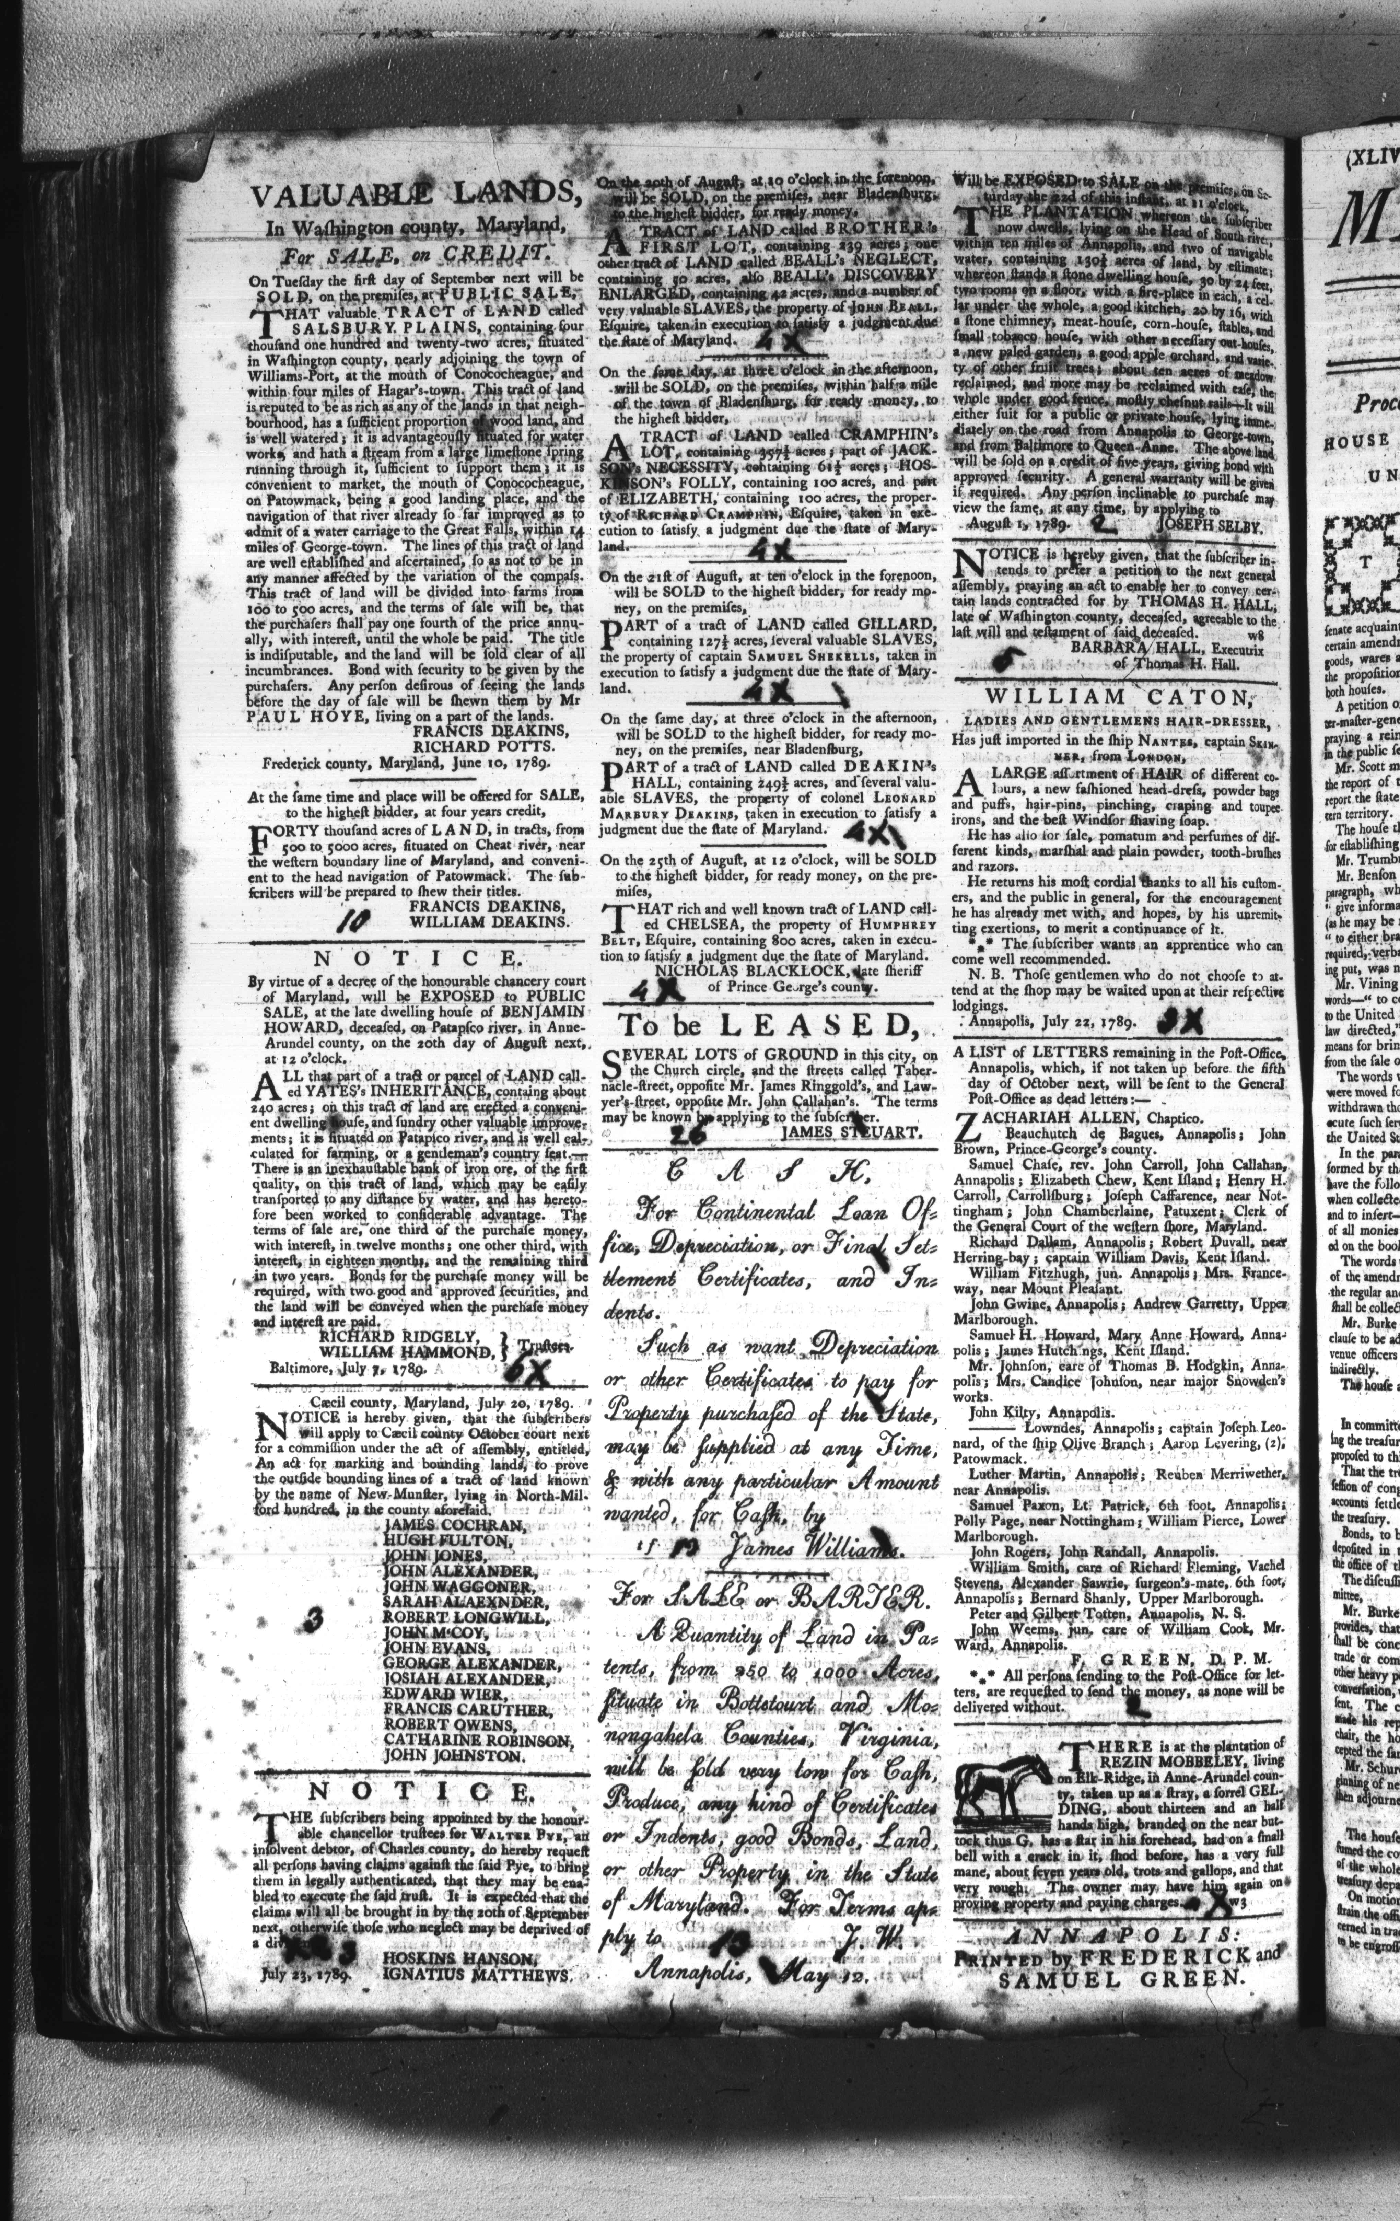 VALUABLE LANDS,
In Waſhington county, Maryland,
For SALE, on CREDIT.
On Tueſday the firſt day of September next will be
SOLD, on the premiſes, at PUBLIC SALE,
THAT valuable TRACT of LAND called
SALSBURY PLAINS, containing four
thouſand one hundred and twenty-two acres, ſituated
in Waſhington county, nearly adjoining the town of
Williams-Port, at the mouth of Conococheague, and
within four miles of Hagar's-town. This tract of land
is reputed to be as rich as any of the lands in that neigh-
bourhood, has a ſufficient proportion of wood land, and
is well watered; it is advantageouſly ſituated for water
works, and hath a ſtream from a large limeſtone ſpring
running through it, ſufficient to ſupport them; it is
convenient to market, the mouth of Conococheague,
on Patowmack, being a good landing place, and the
navigation of that river already ſo far improved as to
admit of a water carriage to the Great Falls, within 14
miles of George-town. The lines of this tract of land
are well eſtabliſhed and aſcertained, ſo as not to be in
any manner affected by the variation of the compaſs.
This tract of land will be divided into farms from
100 to 500 acres, and the terms of ſale will be, that
the purchaſers ſhall pay one fourth of the price annu-
ally, with intereſt, until the whole be paid. The title
is indiſputable, and the land will be ſold clear of all
incumbrances. Bond with security to be given by the
purchaſers. Any perſon deſirous of ſeeing the lands
before the day of ſale will be ſhewn them by Mr
PAUL HOYE, living on a part of the lands.
FRANCIS DEAKINS,
RICHARD POTTS.
Frederick county, Maryland, June 10, 1789.
At the ſame time and place will be offered for SALE,
to the higheſt bidder, at four years credit,
FORTY thouſand acres of LAND, in tracts, from
500 to 5000 acres, ſituated on Cheat river, near
the weſtern boundary line of Maryland, and conveni-
ent to the head navigation of Patowmack. The ſub-
ſcribers will be prepared to ſhew their titles.
FRANCIS DEAKINS,
10 WILLIAM DEAKINS.
NOTICE.
By virtue of a decree of the honourable chancery court
of Maryland, will be EXPOSED to PUBLIC
SALE, at the late dwelling houſe of BENJAMIN
HOWARD, deceaſed, on Patapſco river, in Anne-
Arundel county, on the 20th day of Auguſt next,
at 12 o'clock.
ALL that part of a tract or parcel of LAND call-
ed YATES's INHERITANCE, containg about
240 acres; on this tract of land are erected a conveni-
ent dwelling houſe, and ſundry other valuable improve-
ments; it is ſituated on Patapſco river, and is well cal-
culated for farming, or a gentleman's country ſeat.—
There is an inexhauſtable bank of iron ore, of the firſt
quality, on this tract of land, which may be eaſily
tranſported to any diſtance by water, and has hereto-
fore been worked to conſiderable advantage. The
terms of ſale are, one third of the purchaſe money,
with intereſt, in twelve months; one other third, with
intereſt, in eighteen months, and the remaining third
in two years. Bonds for the purchaſe money will be
required, with two good and approved ſecurities, and
the land will be conveyed when the purchaſe money
and intereſt are paid.
RICHARD RIDGELY,
WILLIAM HAMMOND, } Truſtees.
Baltimore, July 7, 1789. 6X
Cæcil county, Maryland, July 20, 1789.
NOTICE is hereby given, that the ſubſcribers
will apply to Cæcil county October court next
for a commiſſion under the act of aſſembly, entitled,
An act for marking and bounding lands, to prove
the outſide bounding lines of a tract of land known
by the name of New-Munſter, lying in North-Mil-
ford hundred, in the county aforeſaid.
JAMES COCHRAN,
HUGH FULTON,
JOHN JONES,
JOHN ALEXANDER,
JOHN WAGGONER,
SARAH ALAEXNDER,
3 ROBERT LONGWILL,
JOHN M'COY,
JOHN EVANS,
GEORGE ALEXANDER,
JOSIAH ALEXANDER,
EDWARD WIER,
FRANCIS CARUTHER,
ROBERT OWENS,
CATHARINE ROBINSON,
JOHN JOHNSTON.
NOTICE.
THE ſubſcribers being appointed by the honour-
able chancellor truſtees for WALTER PYE, an
inſolvent debtor, of Charles county, do hereby requeſt
all perſons having claims againſt the ſaid Pye, to bring
them in legally authenticated, that they may be ena-
bled to execute the ſaid truſt. It is expected that the
claims will all be brought in by the 20th of September
next, otherwiſe thoſe who neglect may be deprived of
a
HOSKINS HANSON,
July 23, 1789. IGNATIUS MATTHEWS.
On the 20th of Auguſt, at 10 o'clock in the forenoon,
will be SOLD, on the premiſes, near Bladenſburg,
to the higheſt bidder, for ready money,
A TRACT of LAND called BROTHER's
FIRST LOT, containing 239 acres; one
other tract of LAND called BEALL's NEGLECT,
containing 50 acres, alſo BEALL's DISCOVERY
ENLARGED, containing 42 acres, and a number of
very valuable SLAVES, the property of JOHN BEALL,
Eſquire, taken in execution to ſatisfy a judgment due
the ſtate of Maryland. 4X
On the ſame day, at three o'clock in the afternoon,
will be SOLD, on the premiſes, within half a mile
of the town of Bladenſburg, for ready money, to
the higheſt bidder,
A TRACT of LAND called CRAMPHIN's
LOT, containing 357½ acres; part of JACK-
SON's NECESSITY, containing 61½ acres; HOS-
KINSON's FOLLY, containing 100 acres, and part
of ELIZABETH, containing 100 acres, the proper-
ty of RICHARD CRAMPHIN, Eſquire, taken in exe-
cution to ſatisfy a judgment due the ſtate of Mary-
land. 4X
On the 21ſt of Auguſt, at ten o'clock in the forenoon,
will be SOLD to the higheſt bidder, for ready mo-
ney, on the premiſes,
PART of a tract of LAND called GILLARD,
containing 127½ acres, ſeveral valuable SLAVES,
the property of captain SAMUEL SHEKELLS, taken in
execution to ſatisfy a judgment due the ſtate of Mary-
land. 4X
On the ſame day, at three o'clock in the afternoon,
will be SOLD to the higheſt bidder, for ready mo-
ney, on the premiſes, near Bladenſburg,
PART of a tract of LAND called DEAKIN's
HALL, containing 249½ acres, and ſeveral valu-
able SLAVES, the property of colonel LEONARD
MARBURY DEAKINS, taken in execution to ſatisfy a
judgment due the ſtate of Maryland. 4X
On the 25th of Auguſt, at 12 o'clock, will be SOLD
to the higheſt bidder, for ready money, on the pre-
miſes,
THAT rich and well known tract of LAND call-
ed CHELSEA, the property of HUMPHREY
BELT, Eſquire, containing 800 acres, taken in execu-
tion to ſatisfy a judgment due the ſtate of Maryland.
NICHOLAS BLACKLOCK, late ſheriff
4X of Prince George's county.
To be LEASED,
SEVERAL LOTS of GROUND in this city, on
the Church circle, and the ſtreets called Taber-
nacle-ſtreet, oppoſite Mr. James Ringgold's, and Law-
yer's-ſtreet, oppoſite Mr. John Callahan's. The terms
may be known by applying to the ſubſcriber.
26 JAMES STEUART.
CASH,
For Continental Loan Of-
fice, Depreciation, or Final Set-
tlement Certificates, and In-
dents.
Such as want Depreciation
or other Certificates to pay for
Property purchaſed of the State,
may be ſupplied at any Time,
& with any particular Amount
wanted, for Caſh, by
13 James Williams.
For SALE or BARTER.
A Quantity of Land in Pa-
tents, from 250 to 1000 Acres,
ſituate in Bottetourt and Mo-
nongahela Counties, Virginia,
will be ſold very low for Caſh,
Produce, any kind of Certificates
or Indents, good Bonds, Land,
or other Property in the State
of Maryland. For Terms ap-
ply to 13 J. W.
Annapolis, May 12.
Will be EXPOSED to SALE on the premiſes, on Sa-
turday the 22d of this inſtant, at 11 o'clock,
THE PLANTATION whereon the ſubſcriber
now dwells, lying on the Head of South river,
within ten miles of Annapolis, and two of navigable
water, containing 130½ acres of land, by eſtimate;
whereon ſtands a ſtone dwelling houſe, 30 by 24 feet,
two rooms on a floor, with a fire-place in each, a cel-
lar under the whole, a good kitchen, 20 by 16, with
a ſtone chimney, meat-houſe, corn-houſe, ſtables, and
ſmall tobacco houſe, with other neceſſary out-houſes,
a new paled garden, a good apple orchard, and varie-
ty of other fruit trees; about ten acres of meadow
reclaimed, and more may be reclaimed with eaſe, the
whole under good fence, moſtly cheſnut rails—It will
either ſuit for a public or private houſe, lying imme-
diately on the road from Annapolis to George-town,
and from Baltimore to Queen-Anne. The above land
will be ſold on a credit of five years, giving bond with
approved ſecurity. A general warranty will be given
if required. Any perſon inclinable to purchaſe may
view the ſame, at any time, by applying to
Auguſt 1, 1789. 2 JOSEPH SELBY.
NOTICE is hereby given, that the ſubſcriber in-
tends to prefer a petition to the next general
aſſembly, praying an act to enable her to convey cer-
tain lands contracted for by THOMAS H. HALL,
late of Waſhington county, deceaſed, agreeable to the
laſt will and teſtament of ſaid deceaſed. w8
BARBARA HALL, Executrix
of Thomas H. Hall.
WILLIAM CATON,
LADIES AND GENTLEMENS HAIR-DRESSER,
Has juſt imported in the ſhip NANTES, captain SKIN-
NER, from LONDON,
A LARGE aſſortment of HAIR of different co-
lours, a new faſhioned head-dreſs, powder bags
and puffs, hair-pins, pinching, craping and toupee
irons, and the beſt Windſor ſhaving ſoap.
He has alſo for ſale, pomatum and perfumes of dif-
ferent kinds, marſhal and plain powder, tooth-bruſhes
and razors.
He returns his moſt cordial thanks to all his cuſtom-
ers, and the public in general, for the encouragement
he has already met with, and hopes, by his unremit-
ting exertions, to merit a continuance of it.
*⁎* The ſubſcriber wants an apprentice who can
come well recommended.
N. B. Thoſe gentlemen who do not chooſe to at-
tend at the ſhop may be waited upon at their reſpective
lodgings.
Annapolis, July 22, 1789. 3X
A LIST of LETTERS remaining in the Poſt-Office,
Annapolis, which, if not taken up before the fifth
day of October next, will be ſent to the General
Poſt-Office as dead letters:—
ZACHARIAH ALLEN, Chaptico.
Beauchutch de Bagues, Annapolis; John
Brown, Prince-George's county.
Samuel Chaſe, rev. John Carroll, John Callahan,
Annapolis; Elizabeth Chew, Kent Iſland; Henry H.
Carroll, Carrollſburg; Joſeph Caffarence, near Not-
tingham; John Chamberlaine, Patuxent; Clerk of
the General Court of the weſtern ſhore, Maryland.
Richard Dallam, Annapolis; Robert Duvall, near
Herring-bay; captain William Davis, Kent Iſland.
William Fitzhugh, jun. Annapolis; Mrs. France-
way, near Mount Pleaſant.
John Gwinn, Annapolis; Andrew Garretty, Upper
Marlborough.
Samuel H. Howard, Mary Anne Howard, Anna-
polis; James Hutchings, Kent Iſland.
Mr. Johnſon, care of Thomas B. Hodgkin, Anna-
polis; Mrs. Candice Johnſon, near major Snowden's
works.
John Kilty, Annapolis.
—— Lowndes, Annapolis; captain Joſeph Leo-
nard, of the ſhip Olive Branch; Aaron Levering, (2),
Patowmack.
Luther Martin, Annapolis; Reuben Merriwether,
near Annapolis.
Samuel Paxon, Lt. Patrick, 6th foot, Annapolis;
Polly Page, near Nottingham; William Pierce, Lower
Marlborough.
John Rogers, John Randall, Annapolis.
William Smith, care of Richard Fleming, Vachel
Stevens, Alexander Sawrie, ſurgeon's-mate, 6th foot,
Annapolis; Bernard Shanly, Upper Marlborough.
Peter and Gilbert Totten, Annapolis, N. S.
John Weems, jun. care of William Cook, Mr.
Ward, Annapolis.
F. GREEN, D. P. M.
*⁎* All perſons ſending to the Poſt-Office for let-
ters, are requeſted to ſend the money, as none will be
delivered without. 2
THERE is at the plantation of
REZIN MOBBELEY, living
on Elk-Ridge, in Anne-Arundel coun-
ty, taken up as a ſtray, a ſorrel GEL-
DING, about thirteen and an half
hands high, branded on the near but-
tock thus G, has a ſtar in his forehead, had on a ſmall
bell with a crack in it, ſhod before, has a very full
mane, about ſeven years old, trots and gallops, and that
very rough. The owner may have him again on
proving property and paying charges. X w3
ANNAPOLIS:
PRINTED by FREDERICK and
SAMUEL GREEN.
(XLIV
M
Proc
HOUSE
UN
T
ſenate acquaint
certain amend
goods, wares a
the propoſition
both houſes.
A petition o
praying a rein
in the public ſe
Mr. Scott m
the report of t
report the ſtate
tern territory.
The houſe t
for eſtabliſhing
Mr. Trumb
Mr. Benſon
paragraph, wh
" give informa
(as he may be
" to either bra
required, verba
ing put, was n
Mr. Vining
words—" to c
to the United
law directed,"
means for brin
from the ſale o
The words
were moved fo
withdrawn th
the United St
In the par
formed by th
have the follo
when collecte
and to inſert—
of all monies
ed on the boo
The words
of the amend
the regular an
ſhall be collect
Mr. Burke
clauſe to be ad
venue officers
indirectly.
The houſe
In committe
ing the treaſur
propoſed to th
That the tr
ſeſſion of cong
accounts ſettle
the treaſury.
Bonds, to b
depoſited in t
the office of th
The diſcuſſi
mittee,
Mr. Burke
provides, that
ſhall be conc
trade or com
other heavy p
converſation,
ſent. The c
made his rep
chair, the ho
cepted the ſa
Mr. Schur
ginning of ne
then adjourne
The houſe
of the whole
treaſury depa
On motion
ſtrain the offi
cerned in tra
to be engroſſ